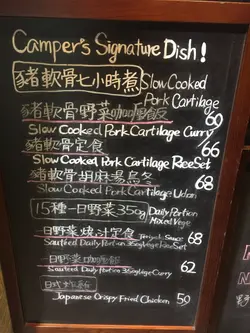 Camper's Signature Dish!
豬軟骨七小時煮 Slow Cooked
Pork Cartilage
豬軟骨野菜咖喱飯 60
Slow Cooked Pork Cartilage Curry
豬軟骨定食 66
Slow Cooked Pork Cartilage Rice Set
豬軟骨胡麻湯烏冬 68
Slow Cooked Pork Cartilage Udon
15種一日野菜350g Daily Portion
Mixed Vege
一日野菜燒汁定食 Teriyaki Sauce 68
Sauteed Daily Portion 350g Vege Rice Set
一日野菜咖喱飯 62
Sauteed Daily Portion 350g Vege Curry
日式炸雞
Japanese Crispy Fried Chicken 59